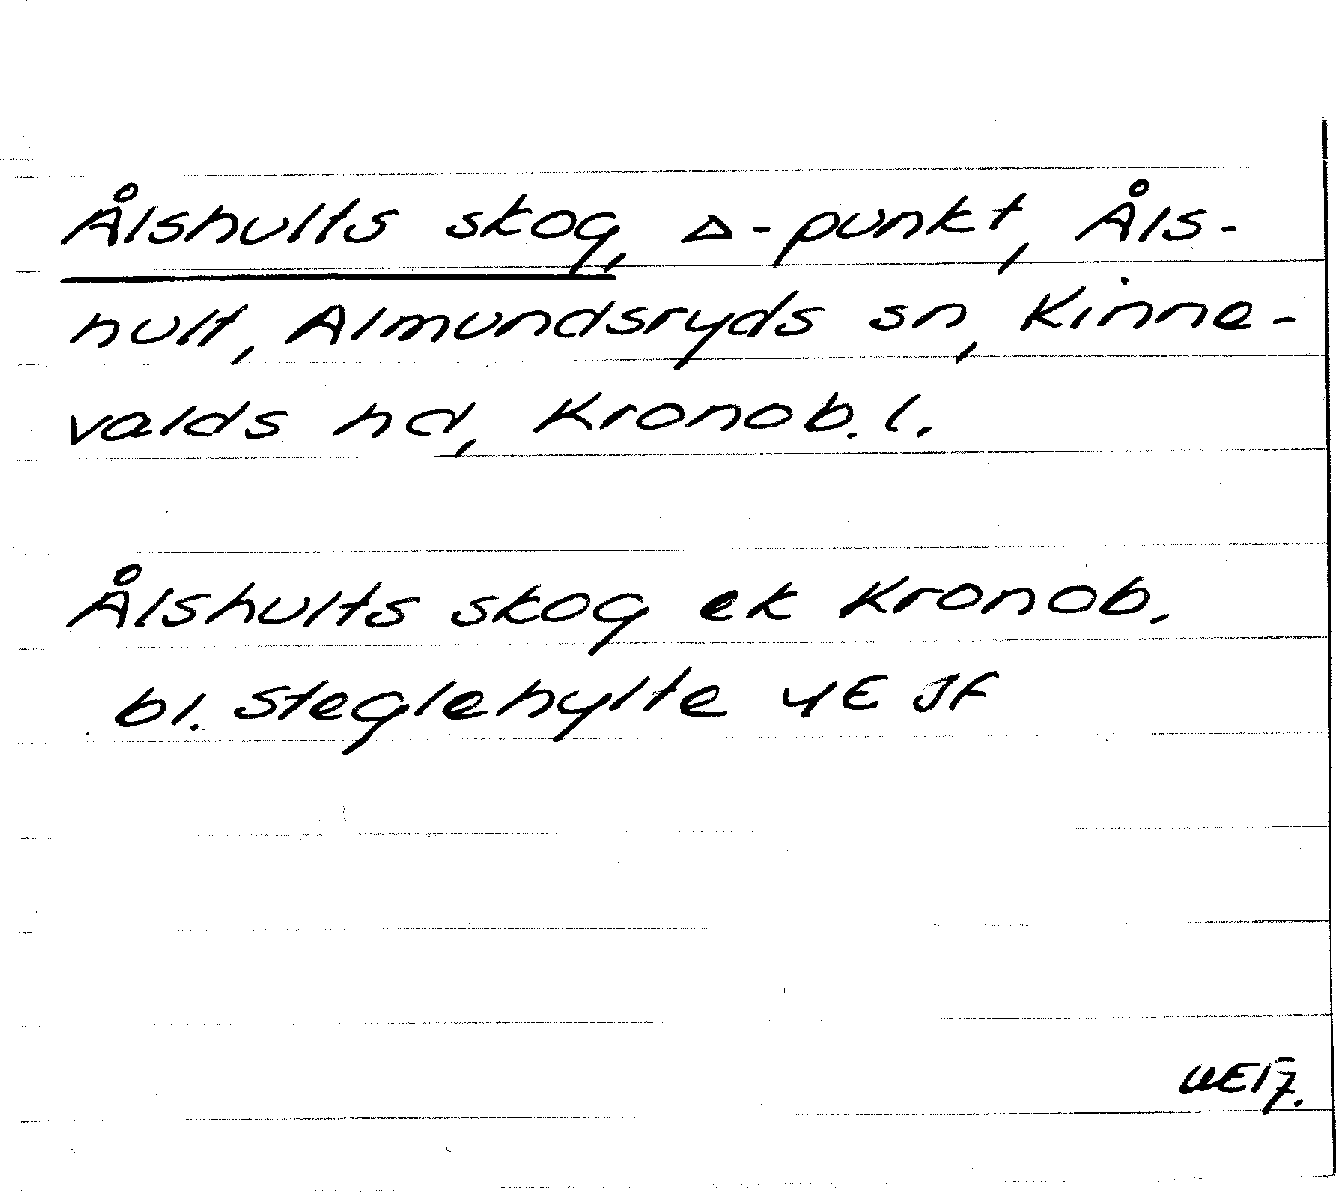 Ålshults skog, △-punkt, Åls-
hult, Almundsryds sn, Kinne-
valds hd, Kronob. l.
Ålshults skog ek Kronob.
bl. Steglehylte 4E JF